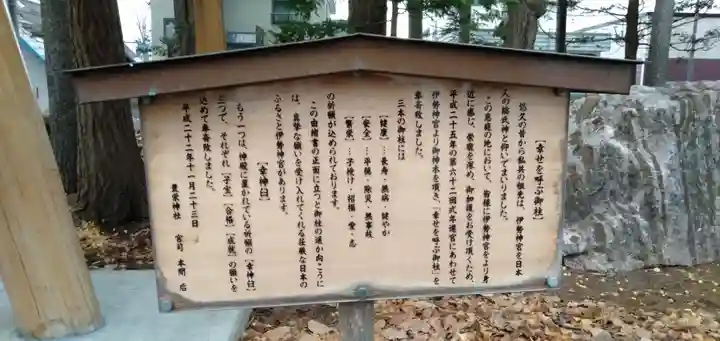 【幸せを呼ぶ御柱】
悠久の昔から私共の祖先は、伊勢神宮を日本
人の総氏神と仰いでまいりました。
この恵庭の地において、皆様に伊勢神宮をより身
近に感じ、崇敬を深め、御加護をお受け頂くため、
平成二十五年の第六十二回式年遷宮にあわせて
伊勢神宮より御神木を頂き、「幸せを呼ぶ御柱」を
奉斎致しました。
三本の御柱には
【健康】…長寿・無病・健やか
【安全】…平穏・除災・無事故
【繁栄】…子授け・招福・愛・志
の祈願が込められております。
この由緒書の正面に立つと御柱の遥か向こうに
は、真摯な願いを受け入れてくれる荘厳な日本の
ふるさと伊勢神宮があります。
【幸神臼】
もう一つは、神殿に置かれている祈願の「幸神臼」
三つで、それぞれ【子宝】【合格】【成就】の願いを
込めて奉斎致しました。
平成二十二年十一月二十三日
豊栄神社 宮司 本間